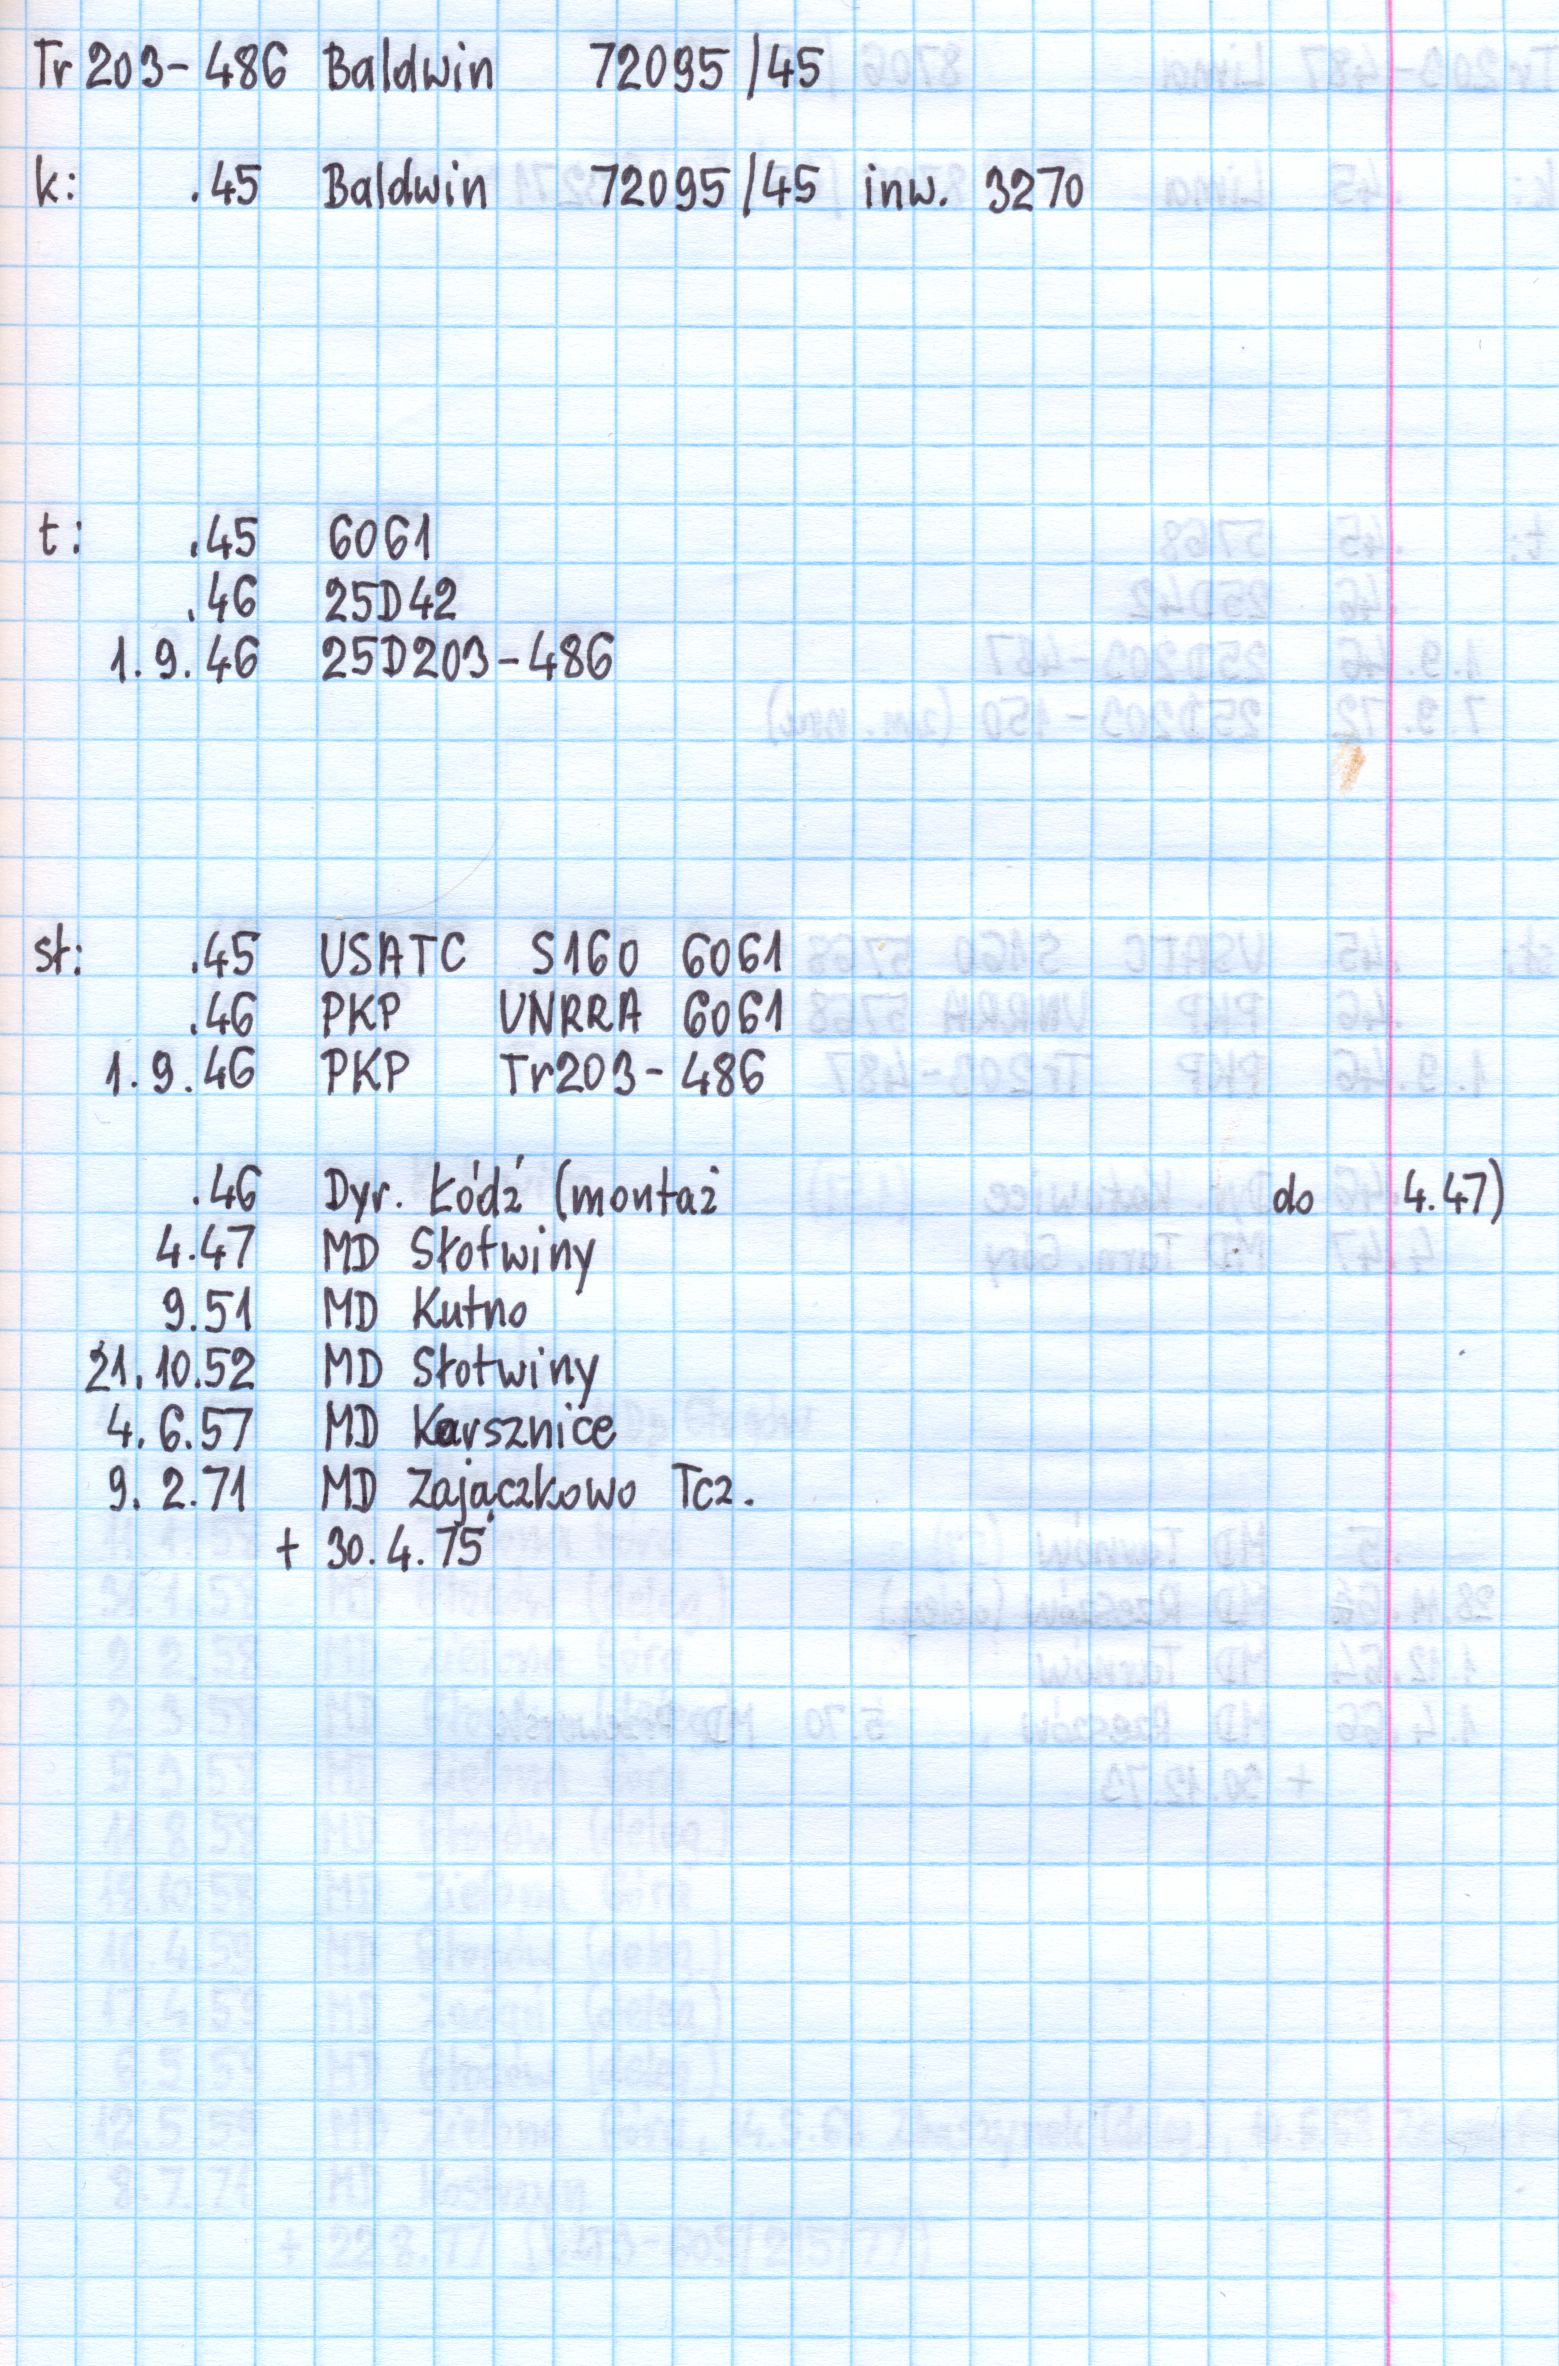 Tr203-486 Baldwin 72095/45
k: .45 Baldwin 72095/45 inw. 3270
t: .45 6061
.46 25D42
1.9.46 25D203-486
sł: .45 USATC S160 6061
.46 PKP UNRRA 6061
1.9.46 PKP Tr203-486
.46 Dyr. Łódź (montaż do 4.47)
4.47 MD Słotwiny
9.51 MD Kutno
21.10.52 MD Słotwiny
4.6.57 MD Karsznice
9.2.71 MD Zajączkowo Tcz.
+ 30.4.75